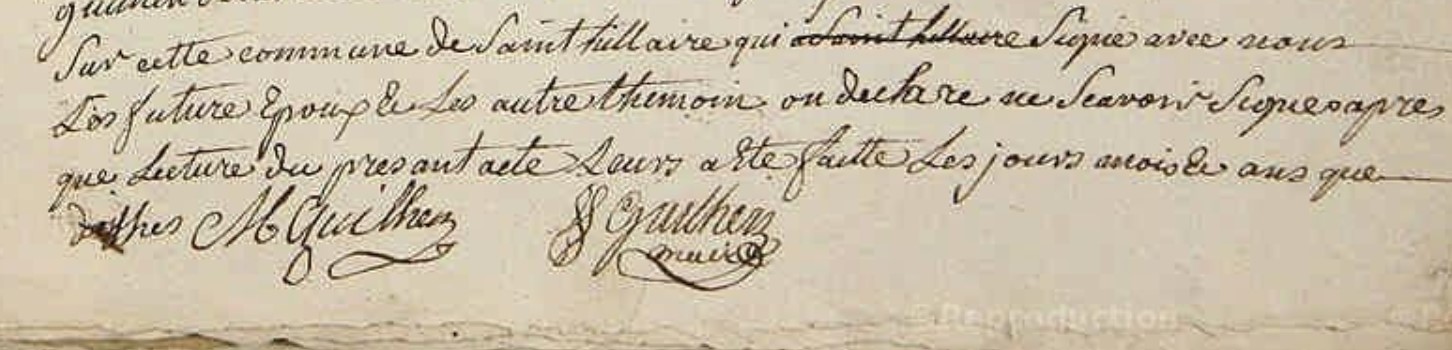 Sur cette commune de Saint hillaire qui a Saint hillaire Signé avec nous
Les future Epoux & Les autre themoin on declare ne Scavoir Signes apres
que Lecture du presant acte Leurs a Ete faitte Les jours mois & ans que
dessus M Guilhem Guilhem
maire
© Reproduction